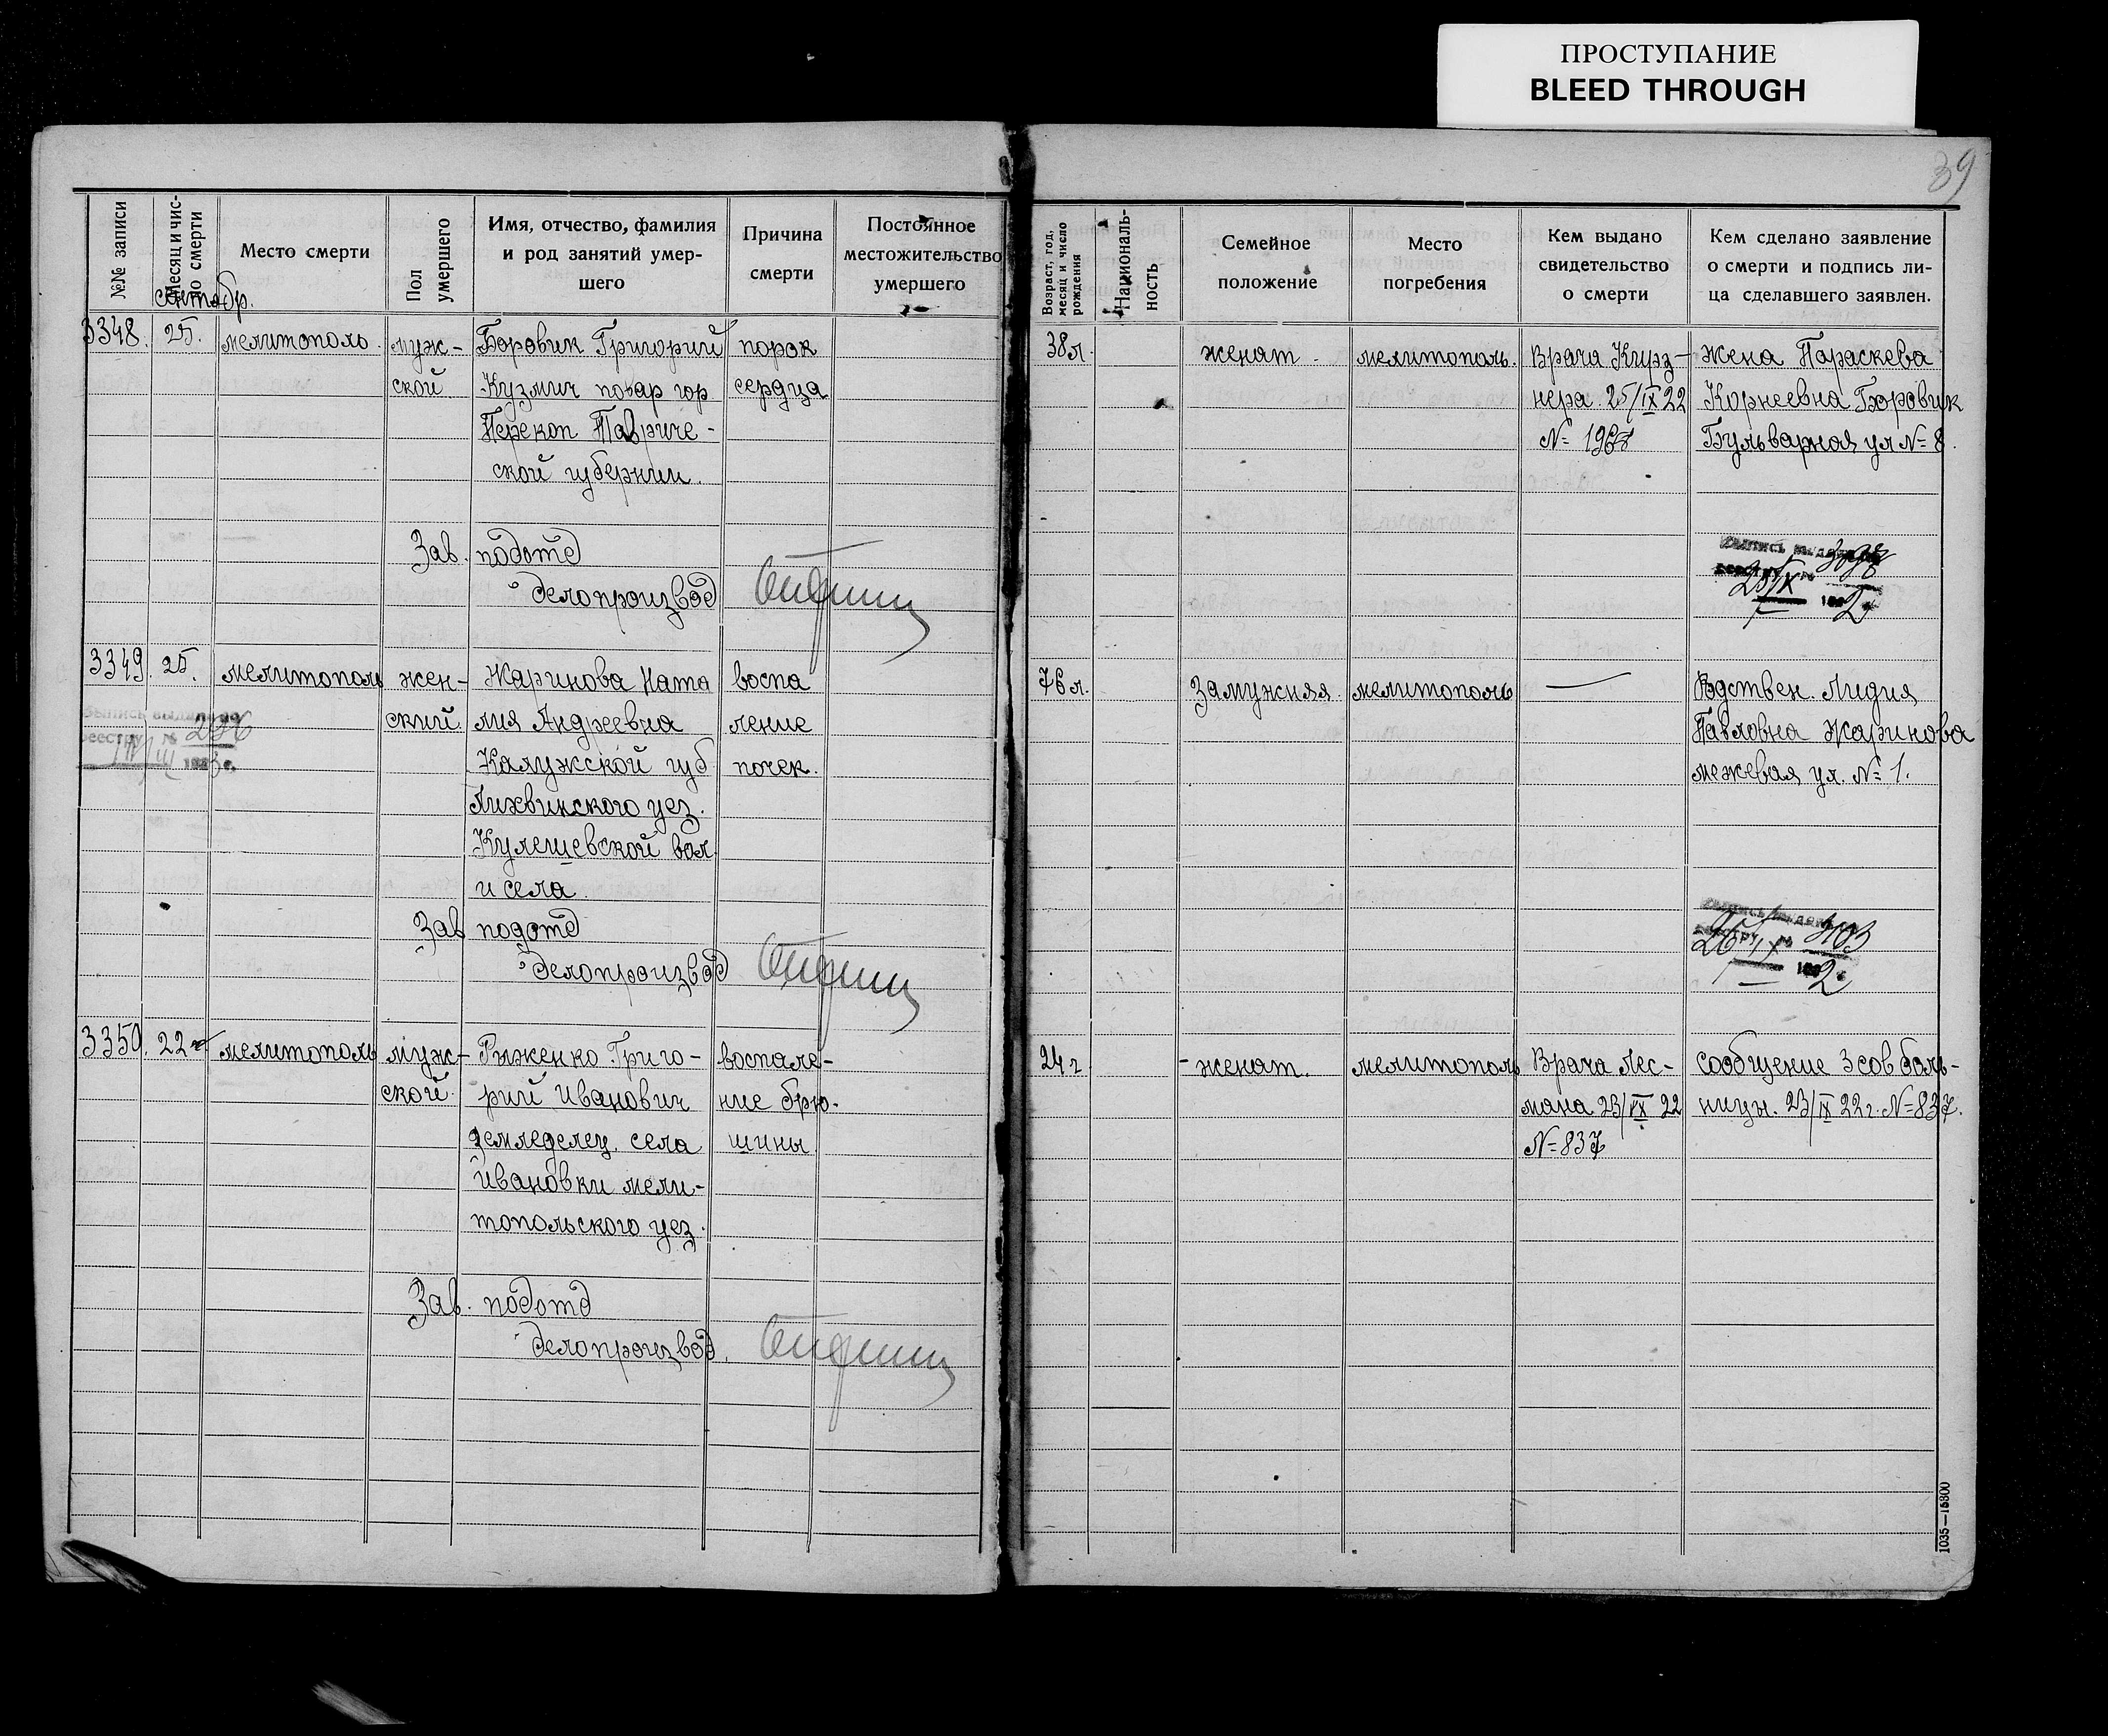 ПРОСТУПАНИЕ
BLEED THROUGH
39
№№ записи
Месяц и чис-
ло смерти
Место смерти
Пол
умершего
Имя, отчество, фамилия
и род занятий умер-
шего
Причина
смерти
Постоянное
местожительство
умершего
Возраст, год,
месяц и число
рождения
Националь-
ность
Семейное
положение
Место
погребения
Кем выдано
свидетельство
о смерти
Кем сделано заявление
о смерти и подпись ли-
ца сделавшего заявлен.
3348. 25. мелитополь. муж- Боровик Григорий порок 38 л. женат. мелитополь. Врача Кирз- жена Параскева
ской Кузмич повар гор. сердца нера 25/IX 22 Корнеевна Боровик
Перекоп Тавриче- № 1968 Бульварная ул № 8.
ской губернии.
Зав. подотд
делопроизвод
Выпись выдана по
реестру № 3098
25/IX 1922 г.
3349. 25. мелитополь жен- Жаринова Ната воспа 76 л. замужняя. мелитополь — Родствен. Лидия
ский. лия Андреевна ление Павловна Жаринова
Калужской губ почек. межевая ул. № 1.
Лихвинского уез.
Кулешевской вол.
и села.
Выпись выдана по
реестру № 236
1923 г.
Зав подотд
делопроизвод
Выпись выдана
реестру №
26/IX 1922 г.
3350. 22 мелитополь муж- Рыженко Григо- воспале- 24 г - женат. мелитополь Врача Лес- сообщение 3 сов боль-
ской. рий Иванович ние брю- мана 23/IX 22 ницы. 23/IX 22 г. № 837.
земледелец. села шины. № 837
Ивановки мели-
топольского уез.
Зав. подотд
делопроизвод.
1035—15800